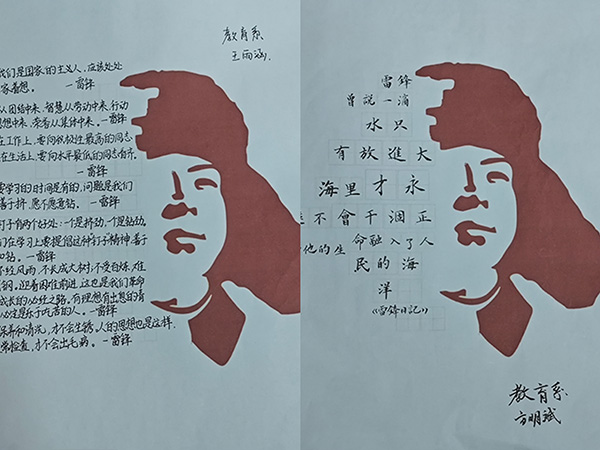 教育系
王雨涵
我们是国家的主义人,应该处处
家着想。 —雷锋
从团结中来,智慧从劳动中来,行动
思想中来,荣誉从集体中来。—雷锋
在工作上,要向积极性最高的同志
在生活上,要向水平最低的同志看齐。
—雷锋
要学习的时间是有的,问题是我们
善于挤,愿不愿意钻。—雷锋
钉子有两个好处:一个是挤劲,一个是钻劲,
们在学习上要提倡这种钉子精神,善于
和钻。—雷锋
不经风雨,不长成大树;不受百炼,难
钢。迎着困难前进,这也是我们革命
成长的必经之路。有理想有出息的青
必定是乐于吃苦的人。—雷锋
保养和清洗,才不会生锈。人的思想也是这样,
常检查,才不会出毛病。—雷锋
雷鋒
曾説一滴
水只
有放進大
海里才永
遠不會干涸正
他的生命融入了人
民的海
洋
《雷鋒日記》
教育系
方明斌